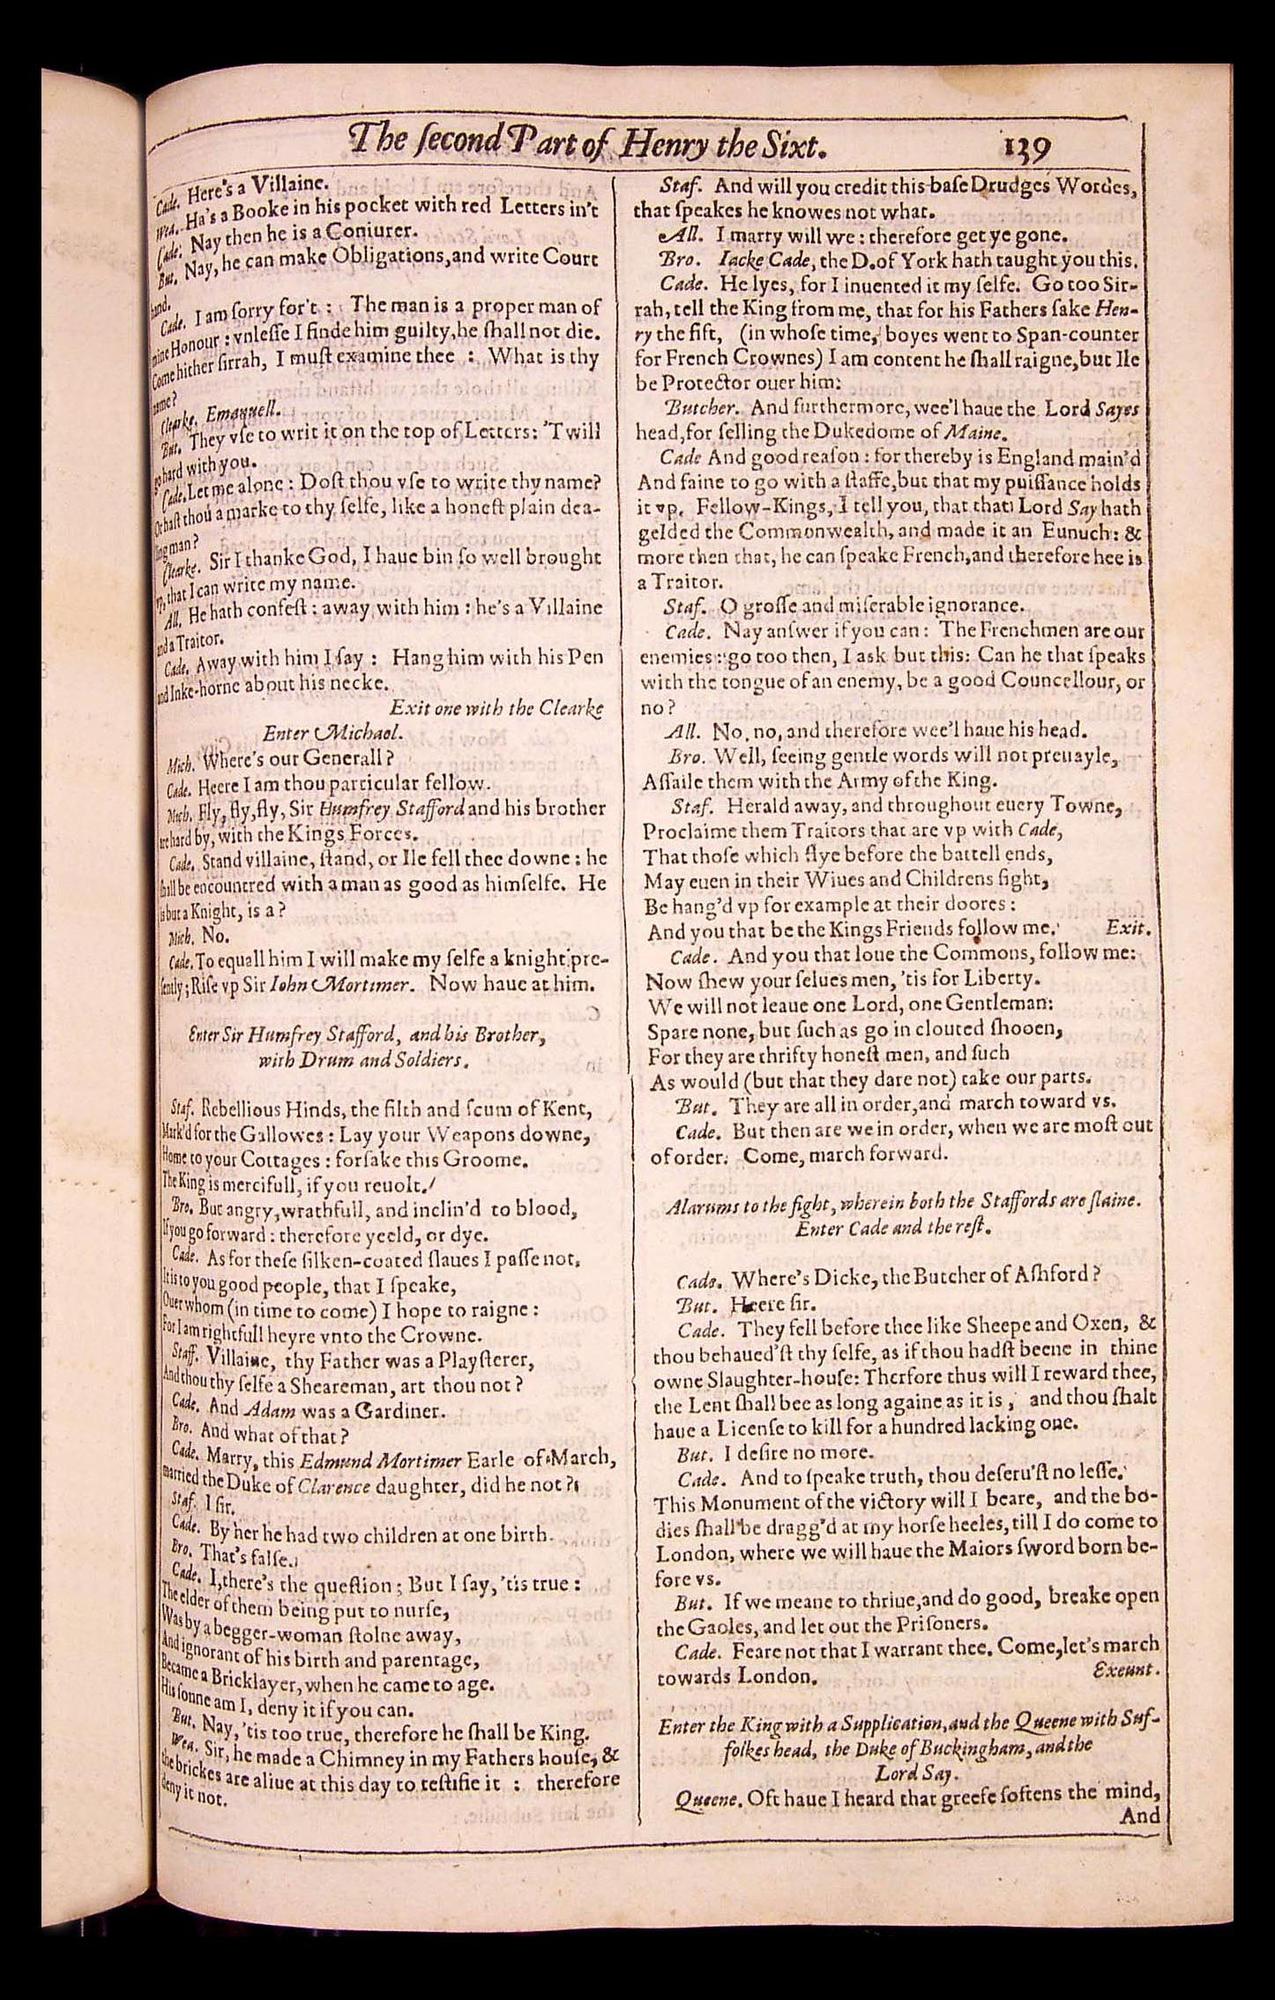 The ſecond Part of Henry the Sixt.
139
Cade. Here's a Villaine.
Wea. Ha's a Booke in his pocket with red Letters in't
Cade. Nay then he is a Coniurer.
But. Nay, he can make Obligations, and write Court
hand.
Cade. I am ſorry for't : The man is a proper man of
mine Honour : vnleſſe I finde him guilty, he ſhall not die.
Come hither ſirrah, I muſt examine thee : What is thy
name?
Clearke. Emanuell.
But. They vſe to writ it on the top of Letters: 'Twill
go hard with you.
Cade. Let me alone : Doſt thou vſe to write thy name?
Or haſt thou a marke to thy ſelfe, like a honeſt plain dea-
ling man?
Clearke. Sir I thanke God, I haue bin ſo well brought
vp, that I can write my name.
All. He hath confeſt : away with him : he's a Villaine
and a Traitor.
Cade. Away with him I ſay : Hang him with his Pen
and Inke-horne about his necke.
Exit one with the Clearke
Enter Michael.
Mich. Where's our Generall?
Cade. Heere I am thou particular fellow.
Mich. Fly, fly, fly, Sir Humfrey Stafford and his brother
are hard by, with the Kings Forces.
Cade. Stand villaine, ſtand, or Ile fell thee downe : he
ſhall be encountred with a man as good as himſelfe. He
is but a Knight, is a?
Mich. No.
Cade. To equall him I will make my ſelfe a knight pre-
ſently; Riſe vp Sir Iohn Mortimer. Now haue at him.
Enter Sir Humfrey Stafford, and his Brother,
with Drum and Soldiers.
Staf. Rebellious Hinds, the filth and ſcum of Kent,
Mark'd for the Gallowes : Lay your Weapons downe,
Home to your Cottages : forſake this Groome.
The King is mercifull, if you reuolt.
Bro. But angry, wrathfull, and inclin'd to blood,
If you go forward : therefore yeeld, or dye.
Cade. As for theſe ſilken-coated ſlaues I paſſe not,
It is to you good people, that I ſpeake,
Ouer whom (in time to come) I hope to raigne :
For I am rightfull heyre vnto the Crowne.
Staff. Villaine, thy Father was a Playſterer,
And thou thy ſelfe a Sheareman, art thou not?
Cade. And Adam was a Gardiner.
Bro. And what of that?
Cade. Marry, this Edmund Mortimer Earle of March,
married the Duke of Clarence daughter, did he not?
Staf. I ſir.
Cade. By her he had two children at one birth.
Bro. That's falſe.
Cade. I, there's the queſtion; But I ſay, 'tis true :
The elder of them being put to nurſe,
Was by a begger-woman ſtolne away,
And ignorant of his birth and parentage,
Became a Bricklayer, when he came to age.
His ſonne am I, deny it if you can.
But. Nay, 'tis too true, therefore he ſhall be King.
Wea. Sir, he made a Chimney in my Fathers houſe, &
the brickes are aliue at this day to teſtifie it : therefore
deny it not.
Staf. And will you credit this baſe Drudges Wordes,
that ſpeakes he knowes not what.
All. I marry will we : therefore get ye gone.
Bro. Iacke Cade, the D. of York hath taught you this.
Cade. He lyes, for I inuented it my ſelfe. Go too Sir-
rah, tell the King from me, that for his Fathers ſake Hen-
ry the fift, (in whoſe time, boyes went to Span-counter
for French Crownes) I am content he ſhall raigne, but Ile
be Protector ouer him.
Butcher. And furthermore, wee'l haue the Lord Sayes
head, for ſelling the Dukedome of Maine.
Cade And good reaſon : for thereby is England main'd
And faine to go with a ſtaffe, but that my puiſſance holds
it vp. Fellow-Kings, I tell you, that that Lord Say hath
gelded the Commonwealth, and made it an Eunuch: &
more then that, he can ſpeake French, and therefore hee is
a Traitor.
Staf. O groſſe and miſerable ignorance.
Cade. Nay anſwer if you can : The Frenchmen are our
enemies : go too then, I ask but this: Can he that ſpeaks
with the tongue of an enemy, be a good Councellour, or
no?
All. No, no, and therefore wee'l haue his head.
Bro. Well, ſeeing gentle words will not preuayle,
Aſſaile them with the Army of the King.
Staf. Herald away, and throughout euery Towne,
Proclaime them Traitors that are vp with Cade,
That thoſe which flye before the battell ends,
May euen in their Wiues and Childrens ſight,
Be hang'd vp for example at their doores :
And you that be the Kings Friends follow me. Exit.
Cade. And you that loue the Commons, follow me:
Now ſhew your ſelues men, 'tis for Liberty.
We will not leaue one Lord, one Gentleman:
Spare none, but ſuch as go in clouted ſhooen,
For they are thrifty honeſt men, and ſuch
As would (but that they dare not) take our parts.
But. They are all in order, and march toward vs.
Cade. But then are we in order, when we are moſt out
of order. Come, march forward.
Alarums to the fight, wherein both the Staffords are ſlaine.
Enter Cade and the reſt.
Cade. Where's Dicke, the Butcher of Aſhford?
But. Heere ſir.
Cade. They fell before thee like Sheepe and Oxen, &
thou behaued'ſt thy ſelfe, as if thou hadſt beene in thine
owne Slaughter-houſe: Therfore thus will I reward thee,
the Lent ſhall bee as long againe as it is, and thou ſhalt
haue a Licenſe to kill for a hundred lacking one.
But. I deſire no more.
Cade. And to ſpeake truth, thou deſeru'ſt no leſſe.
This Monument of the victory will I beare, and the bo-
dies ſhall be dragg'd at my horſe heeles, till I do come to
London, where we will haue the Maiors ſword born be-
fore vs.
But. If we meane to thriue, and do good, breake open
the Gaoles, and let out the Priſoners.
Cade. Feare not that I warrant thee. Come, let's march
towards London. Exeunt.
Enter the King with a Supplication, and the Queene with Suf-
folkes head, the Duke of Buckingham, and the
Lord Say.
Queene. Oft haue I heard that greefe ſoftens the mind,
And